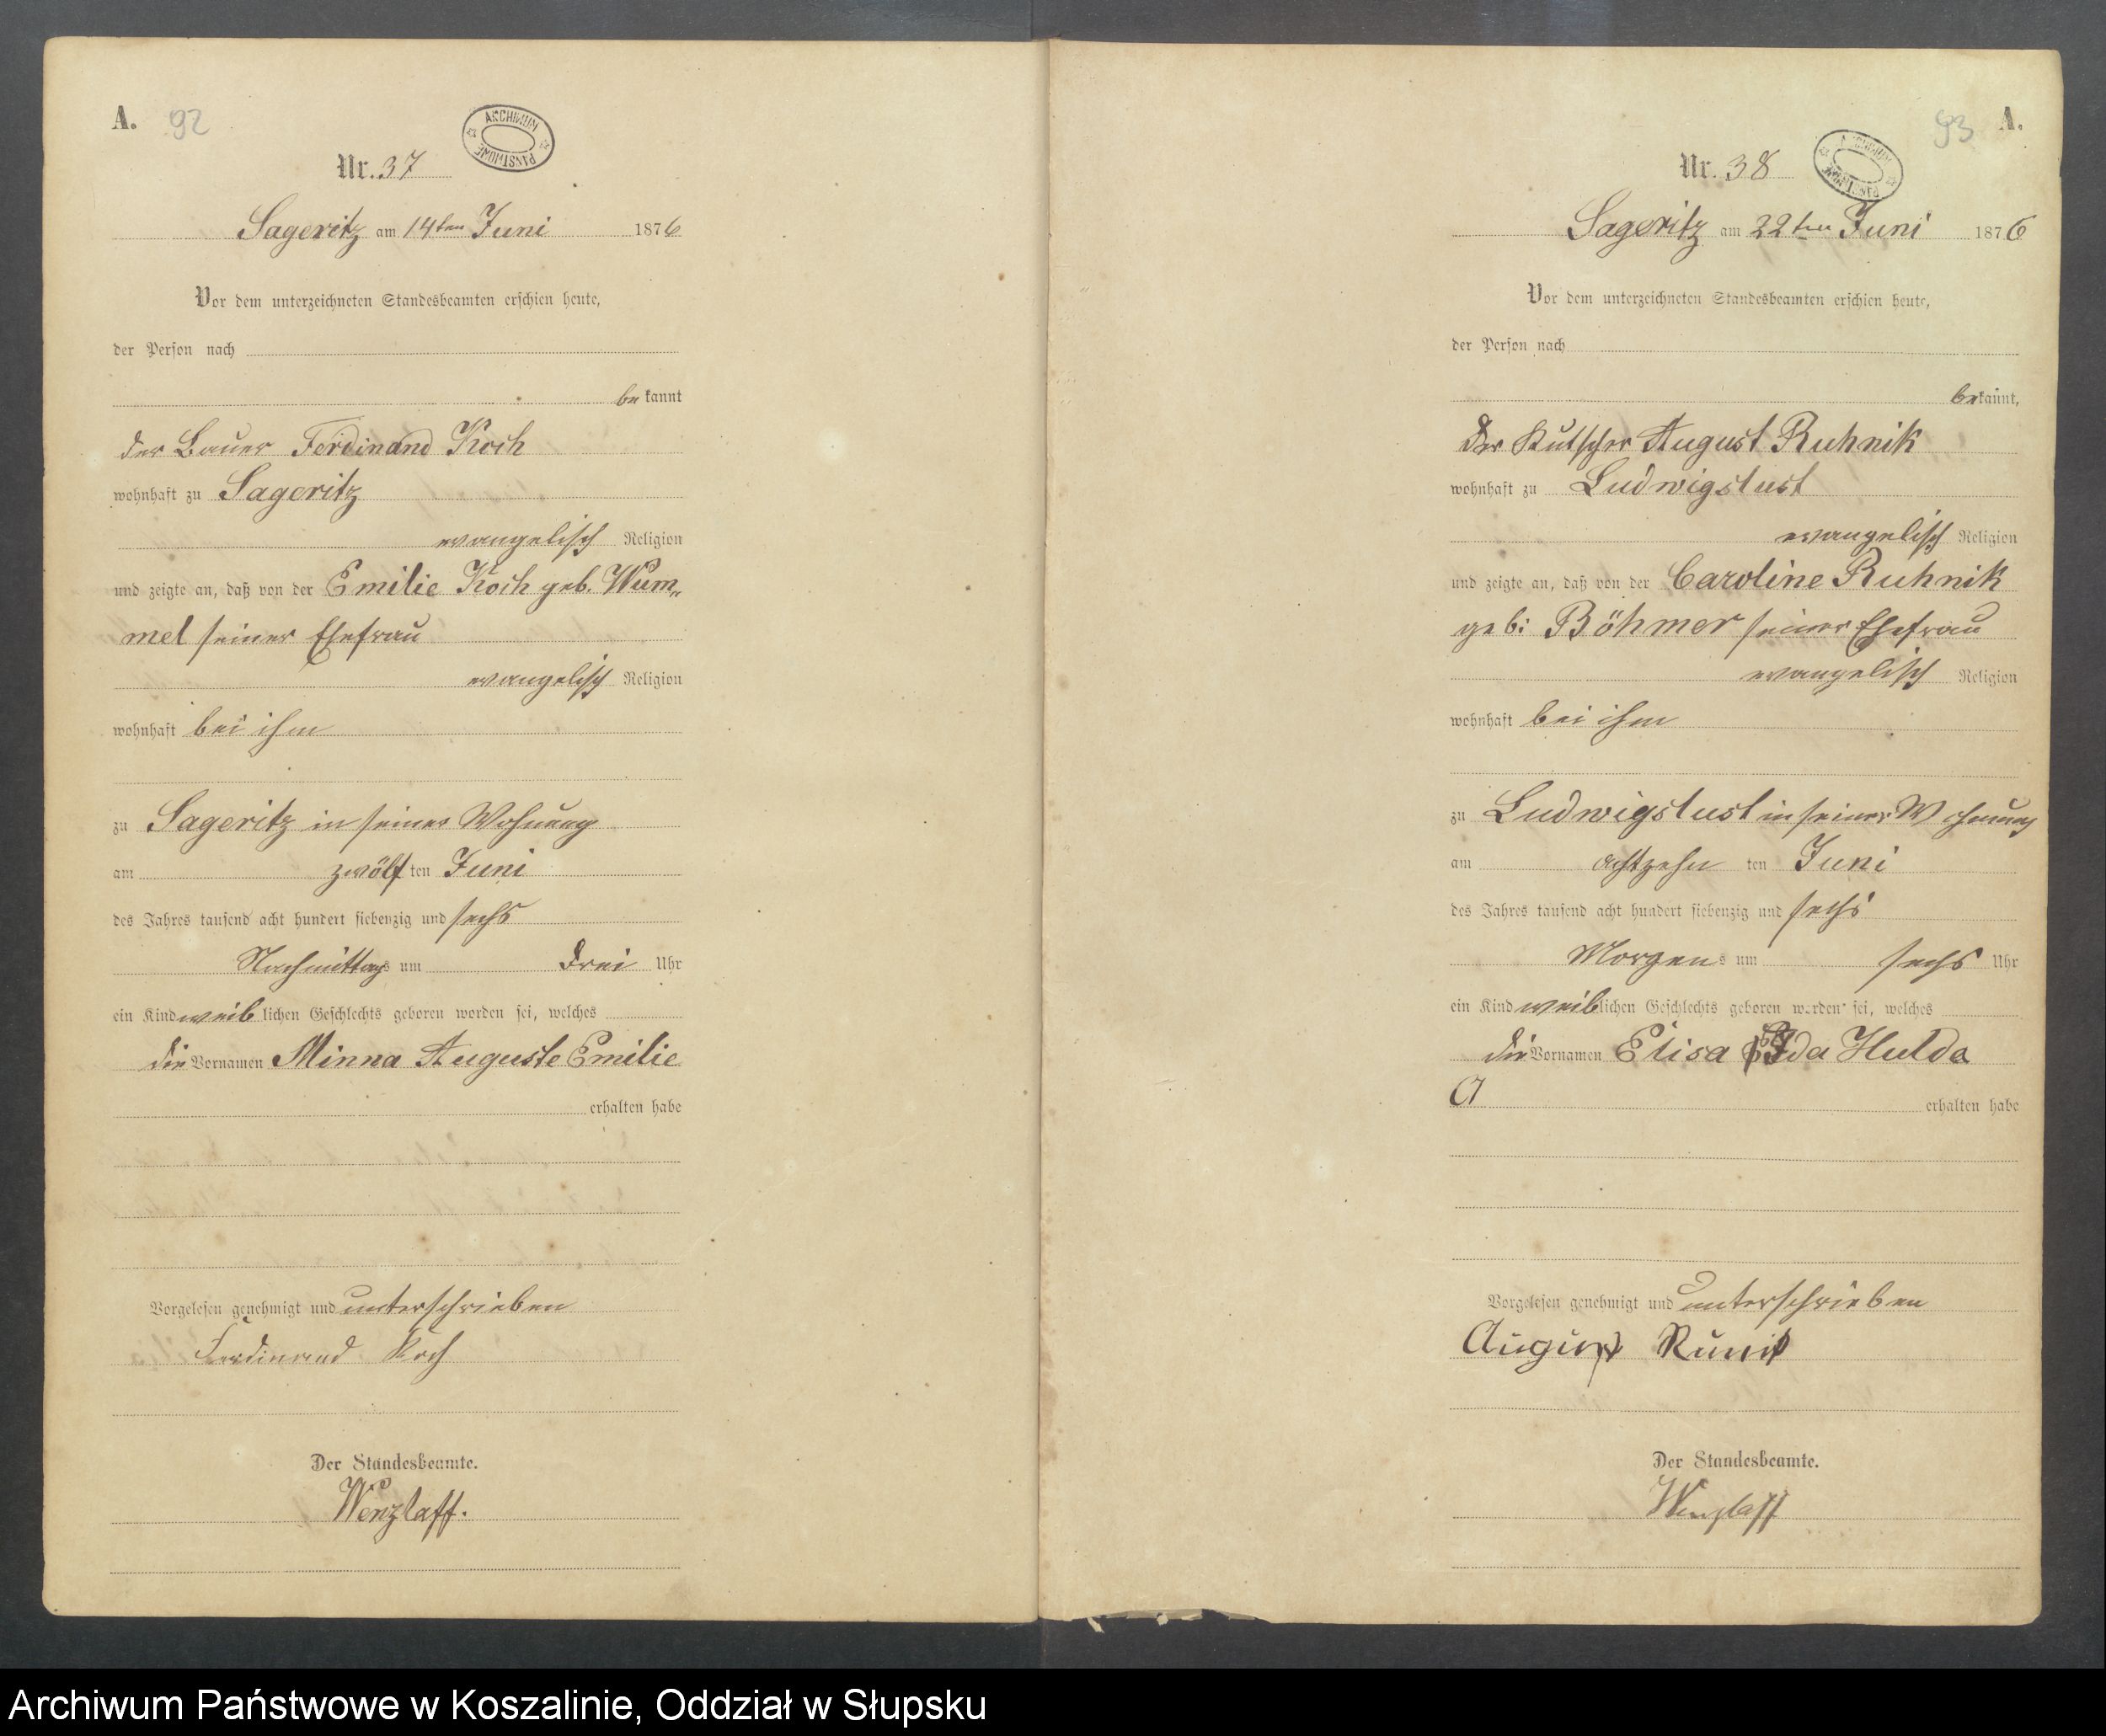 A. 92
ARCHIWUM PAŃSTWOWE
Nr. 37
Sageritz am 14ten Juni 1876
Vor dem unterzeichneten Standesbeamten erschien heute,
der Person nach
bekannt
der Bauer Ferdinand Koch
wohnhaft zu Sageritz
evangelisch Religion
und zeigte an, daß von der Emilie Koch geb. Wum„
mel seiner Ehefrau
evangelisch Religion
wohnhaft bei ihm
zu Sageritz in seiner Wohnung
am zwölf ten Juni
des Jahres tausend acht hundert siebenzig und sechs
Nachmittags um drei Uhr
ein Kind weiblichen Geschlechts geboren worden sei, welches
die Vornamen Minna Auguste Emilie
erhalten habe
Vorgelesen genehmigt und unterschrieben
Ferdinand Koch
Der Standesbeamte.
Wenzlaff.
93 A.
ARCHIWUM PAŃSTWOWE
Nr. 38
Sageritz am 22ten Juni 1876
Vor dem unterzeichneten Standesbeamten erschien heute,
der Person nach
bekannt,
der Kutscher August Ruhnik
wohnhaft zu Ludwigslust
evangelisch Religion
und zeigte an, daß von der Caroline Ruhnik
geb: Böhmer seiner Ehefrau
evangelisch Religion
wohnhaft bei ihm
zu Ludwigslust in seiner Wohnung
am achtzehn ten Juni
des Jahres tausend acht hundert siebenzig und sechs
Morgens um sechs Uhr
ein Kind weiblichen Geschlechts geboren worden sei, welches
die Vornamen Elisa Ida Hulda
erhalten habe
Vorgelesen genehmigt und unterschrieben
August Runik
Der Standesbeamte.
Wenzlaff
Archiwum Państwowe w Koszalinie, Oddział w Słupsku